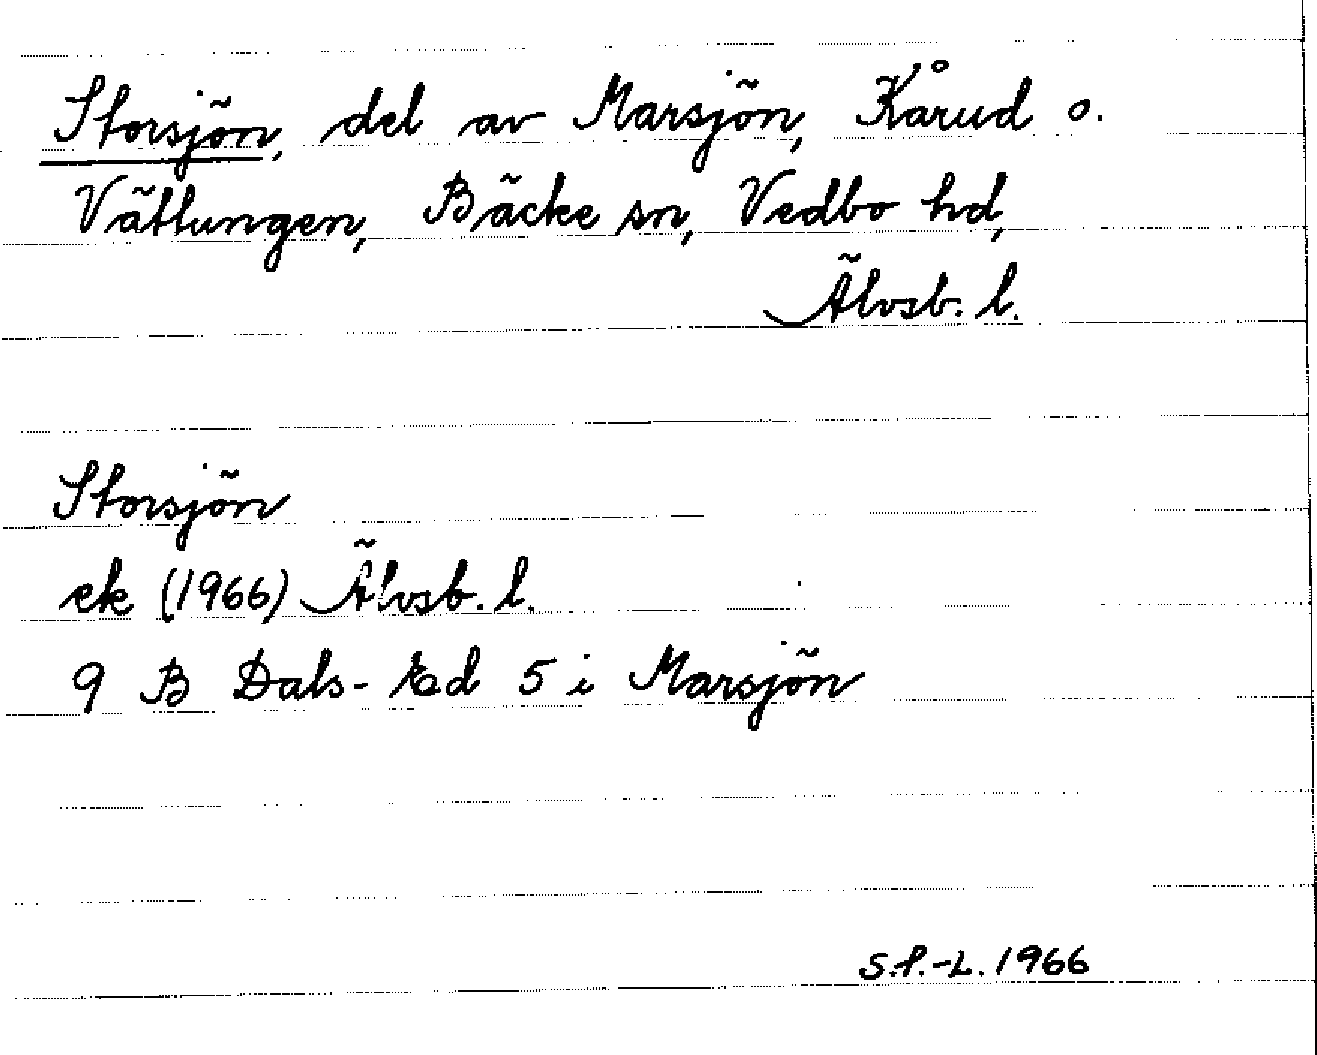 Storsjön, del av Marsjön, Kårud o.
Vättungen, Bäcke sn, Vedbo hd,
Älvsb. l.
Storsjön
ek (1966) Älvsb. l.
9 B Dals-Ed 5 i Marsjön
S.P.-L. 1966